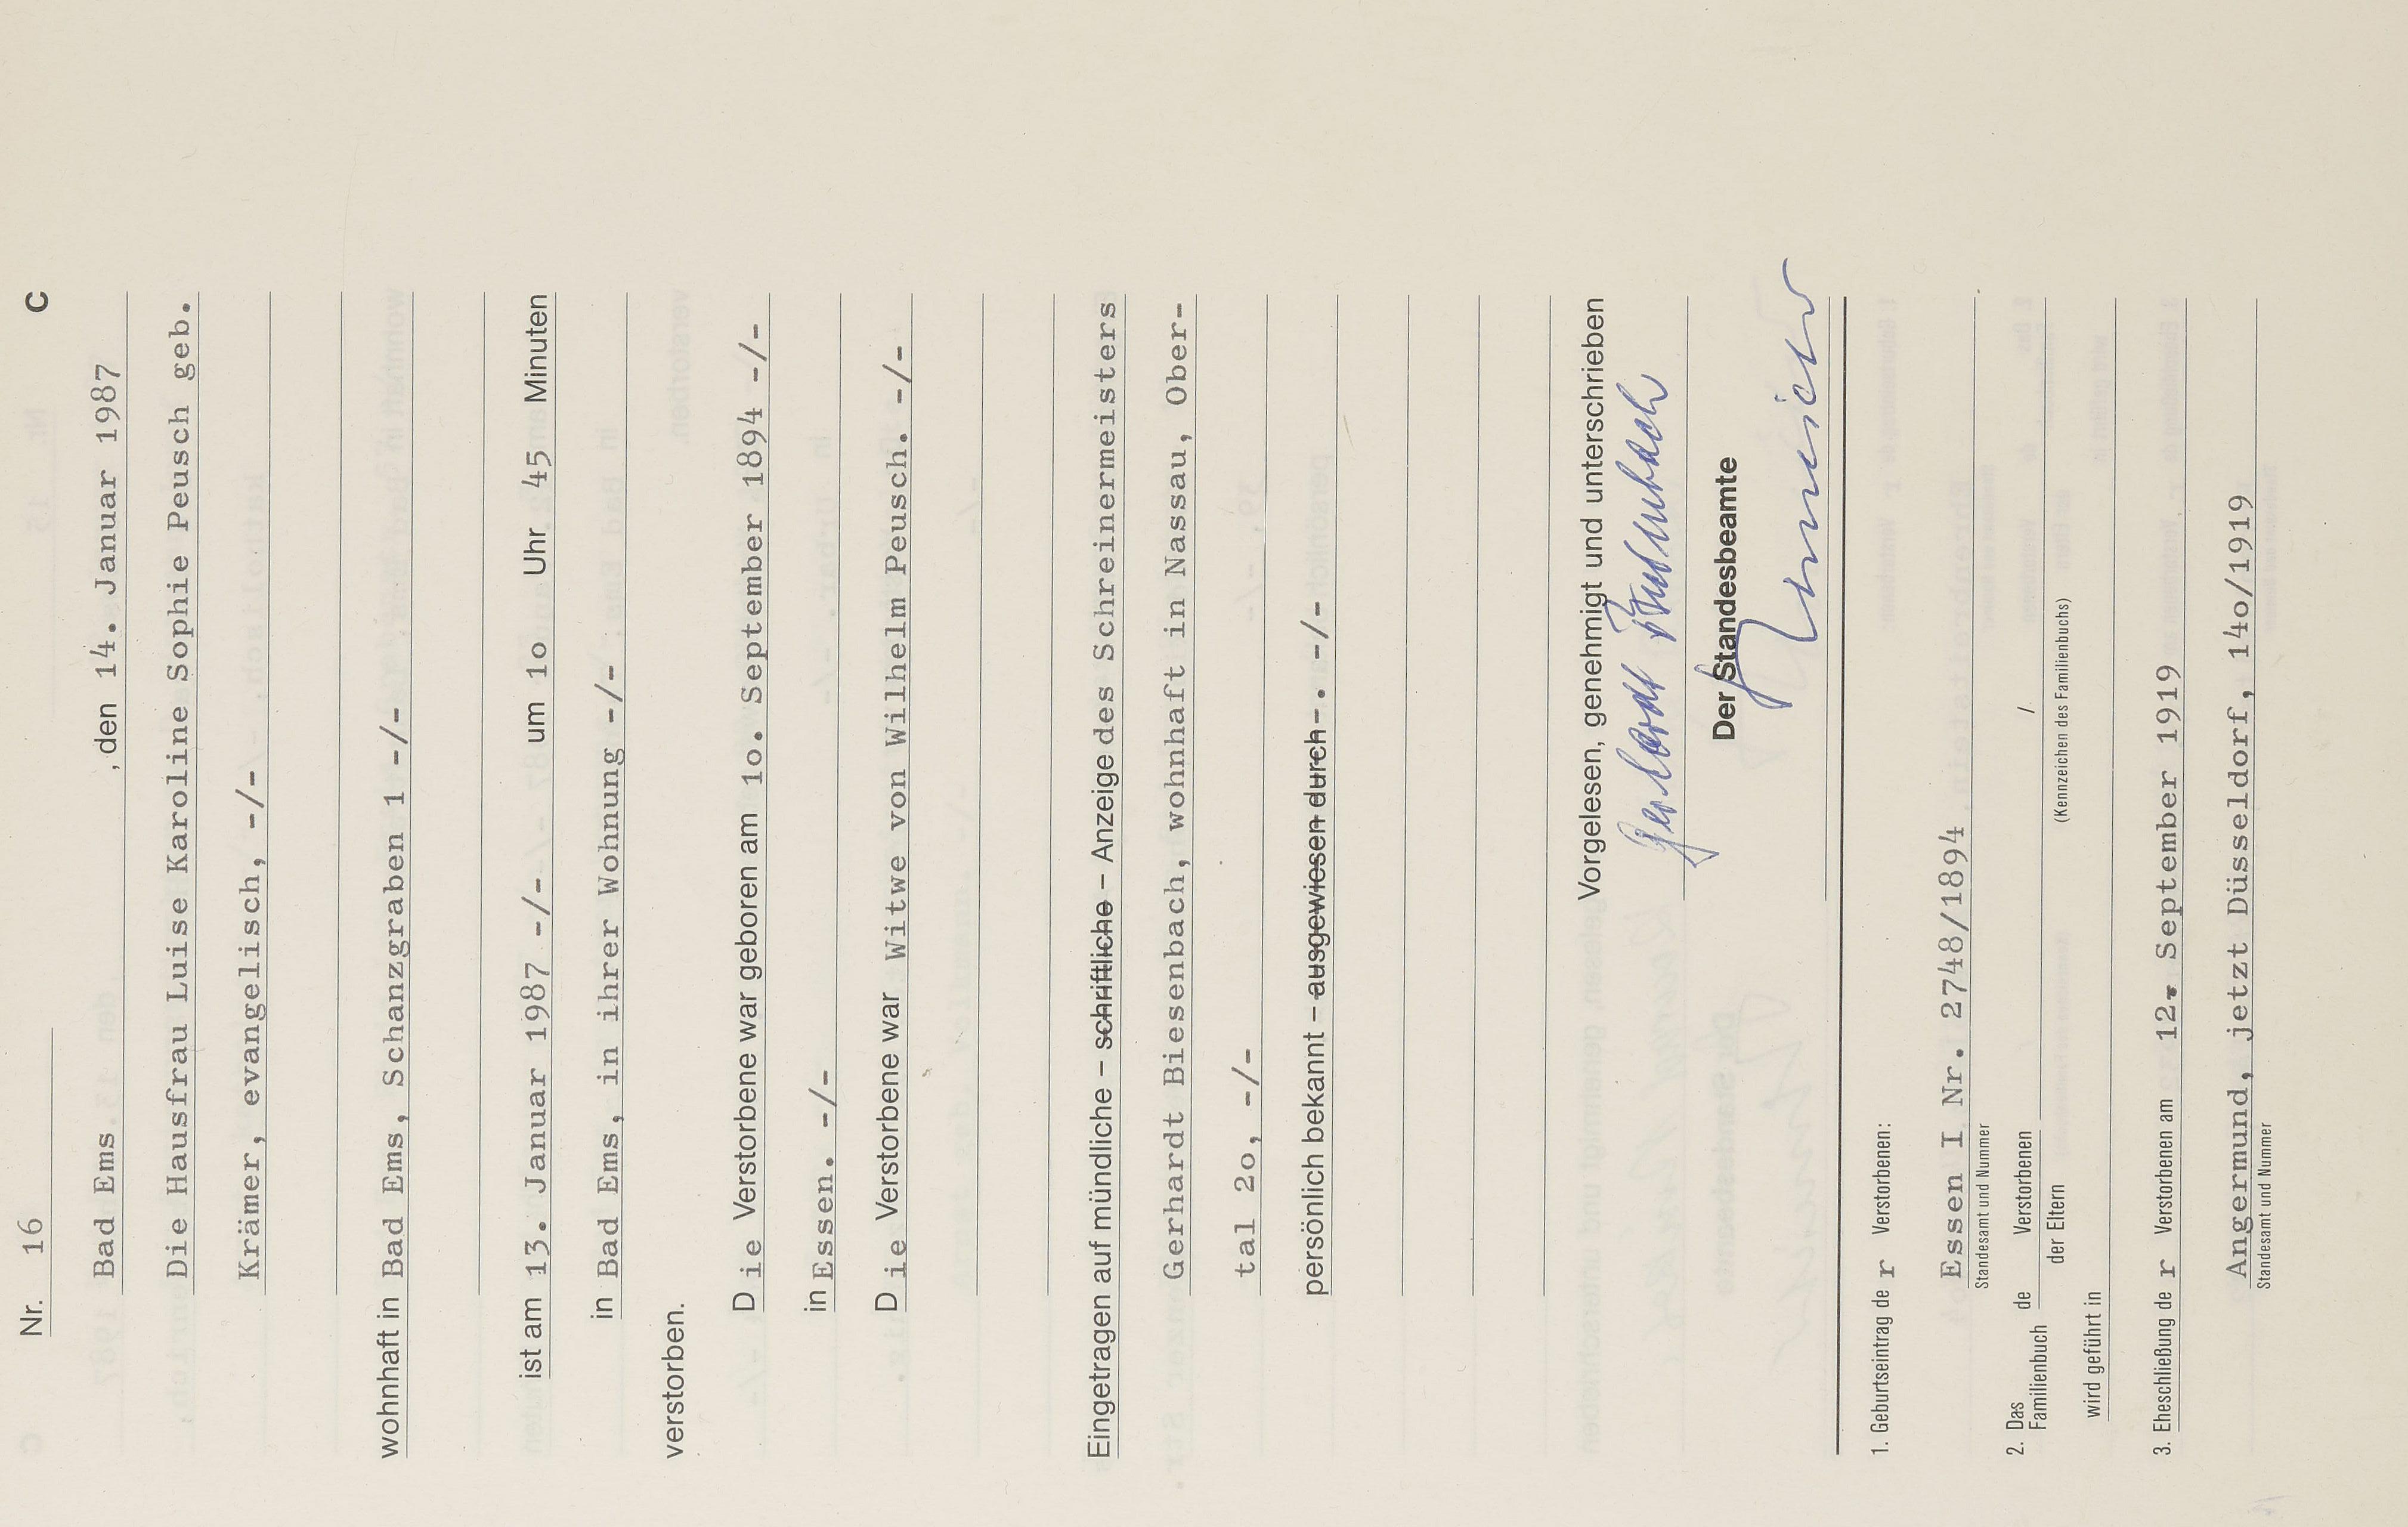 Nr. 16 C
Bad Ems , den 14. Januar 1987
Die Hausfrau Luise Karoline Sophie Peusch geb.
Krämer, evangelisch, -/-
wohnhaft in Bad Ems, Schanzgraben 1 -/-
ist am 13. Januar 1987 -/- um 1o Uhr 45 Minuten
in Bad Ems, in ihrer Wohnung -/-
verstorben.
D ie Verstorbene war geboren am 1o. September 1894 -/-
in Essen. -/-
D ie Verstorbene war Witwe von Wilhelm Peusch. -/-
Eingetragen auf mündliche – schriftliche – Anzeige des Schreinermeisters
Gerhardt Biesenbach, wohnhaft in Nassau, Ober-
tal 2o, -/-
persönlich bekannt – ausgewiesen durch – . -/-
Vorgelesen, genehmigt und unterschrieben
Gerhardt Biesenbach
Der Standesbeamte
1. Geburtseintrag de r Verstorbenen:
Essen I Nr. 2748/1894
Standesamt und Nummer
2. Das Familienbuch de Verstorbenen /
der Eltern (Kennzeichen des Familienbuchs)
wird geführt in
3. Eheschließung de r Verstorbenen am 12. September 1919
Angermund, jetzt Düsseldorf, 14o/1919
Standesamt und Nummer